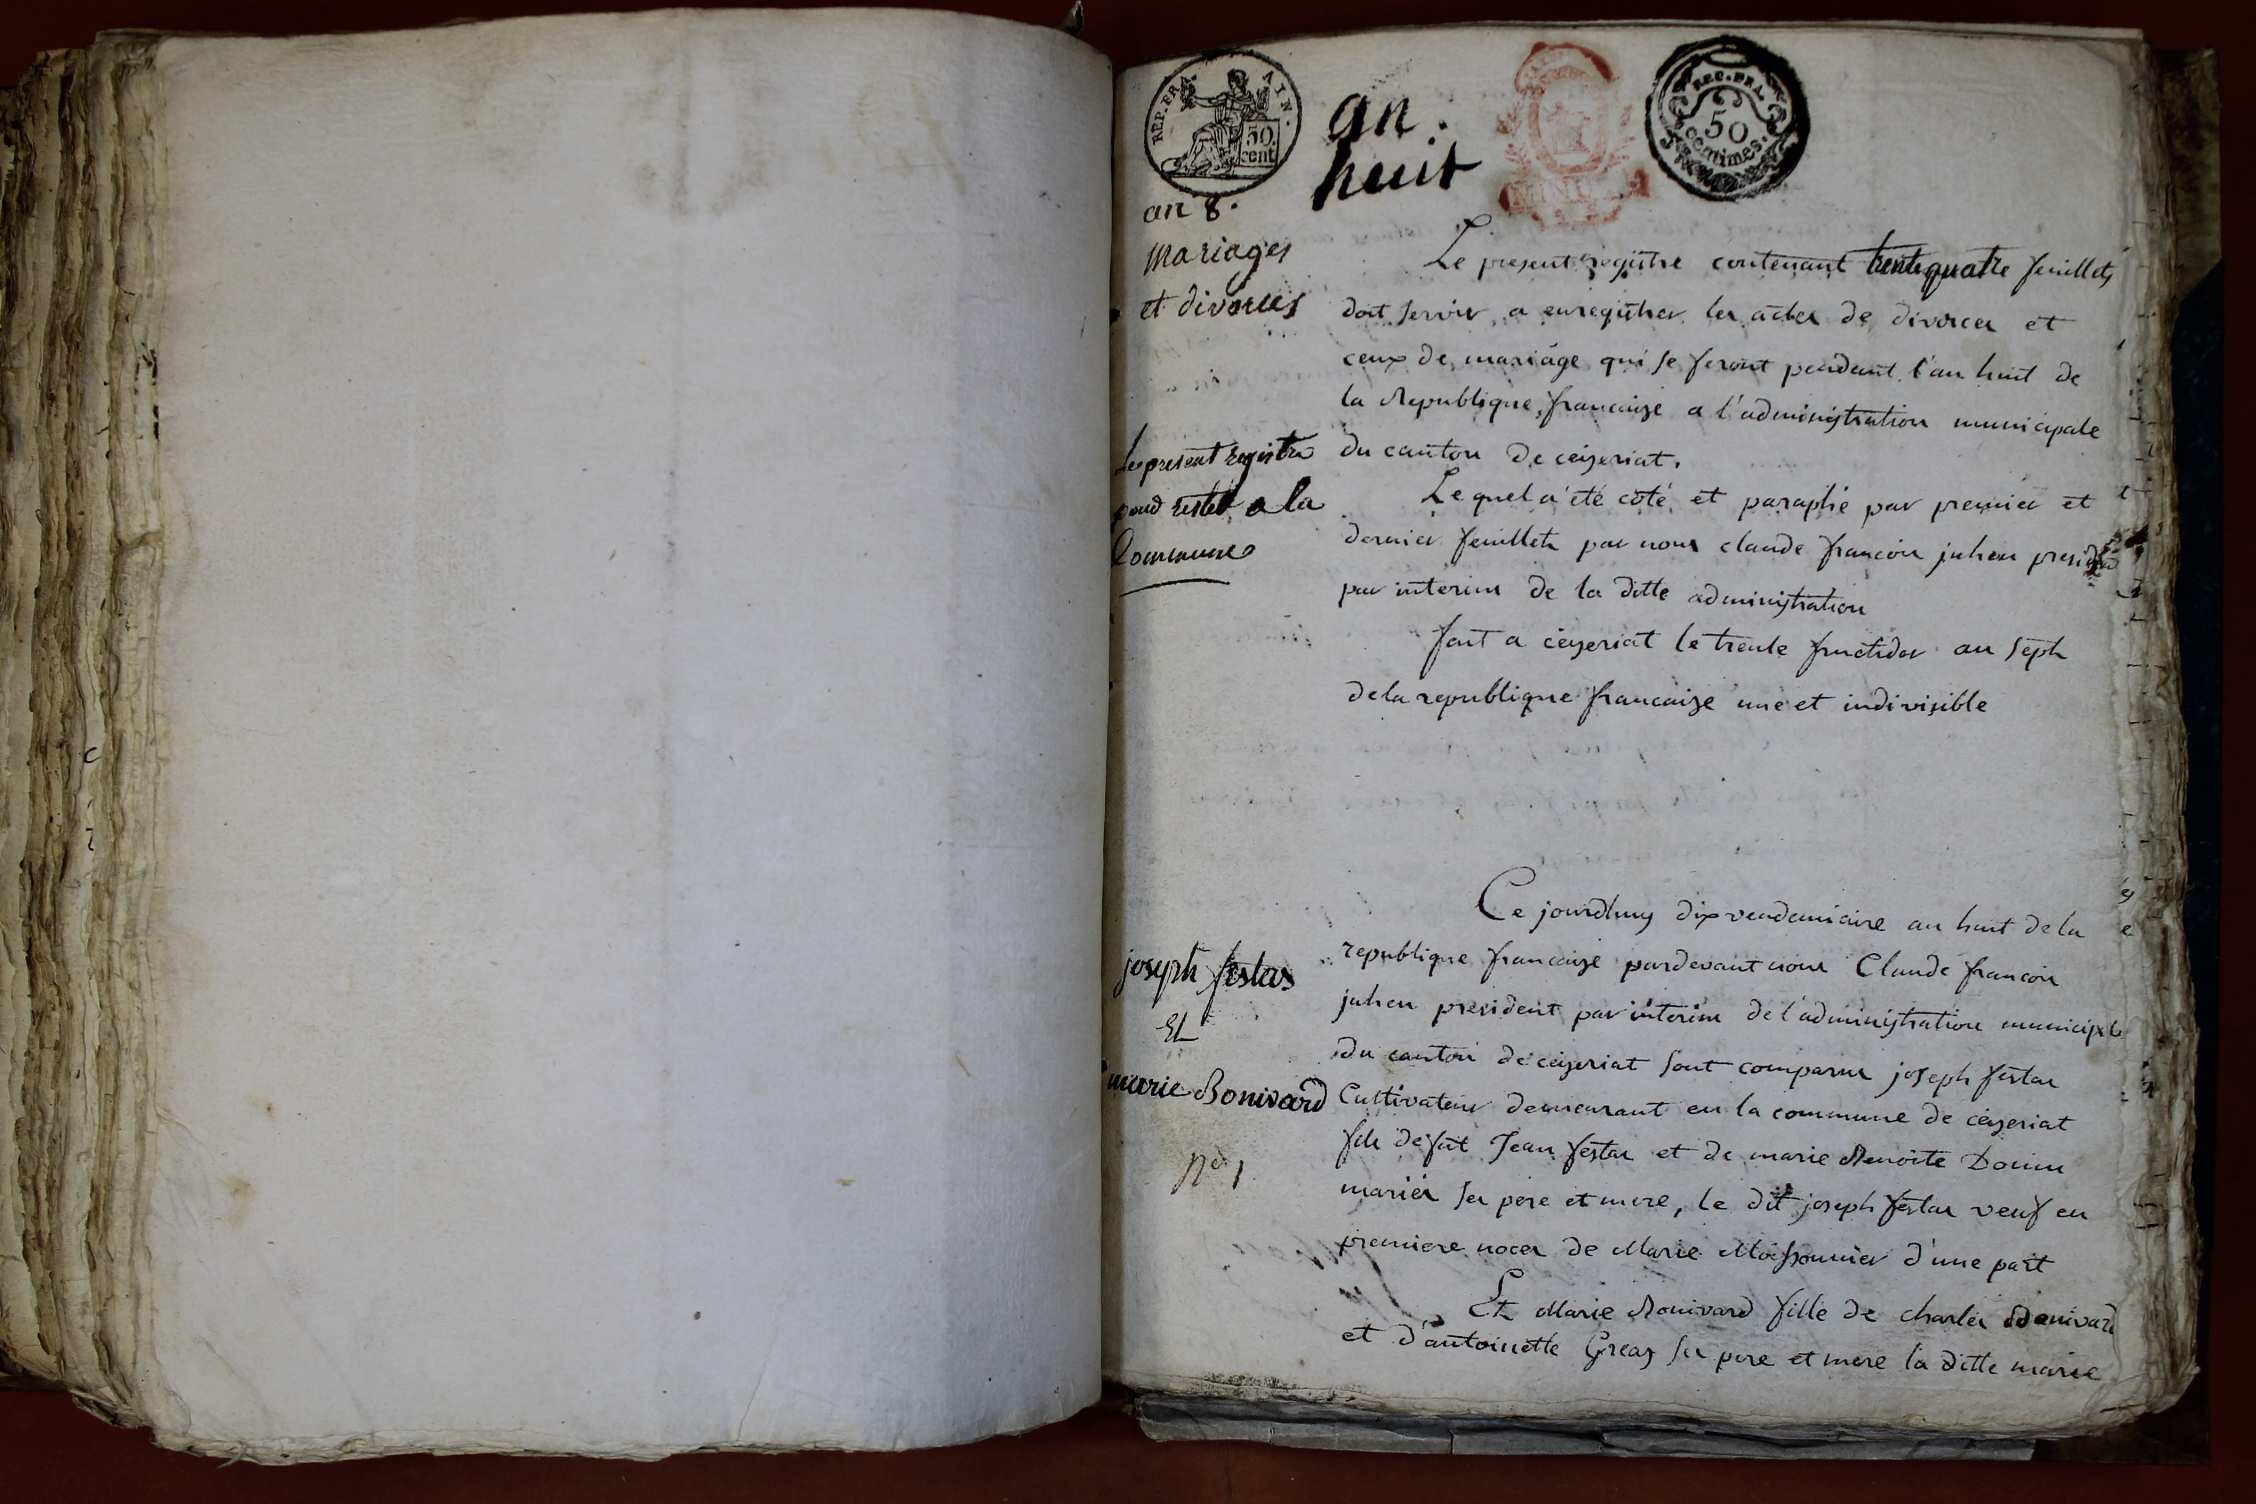 REP. FRA. AIN.
50
cent
an.
huit
REP. FRA.
50
centimes.
an 8.
mariages
et divorces
Le present registre contenant trente quatre feuillets
doit servir a enregistrer les actes de divorces et
ceux de mariage qui se feront pendant l'an huit de
la Republique francaise a l'administration municipale
du canton de ceyzeriat.
Le present registre
pour rester a la
Commune
Le quel a été coté et paraphé par premier et
dernier feuillets par nous claude francois juhen president
par interim de la ditte administration
fait a ceyzeriat le trente fructidor an sept
de la republique francaise une et indivisible
Ce jourdhuy dix vendemiaire an huit de la
republique francaise pardevant nous Claude francois
juhen president par interim de l'administration municipale
du canton de ceyzeriat sont comparus joseph festas
Cultivateur demeurant en la commune de ceyzeriat
fils de fut Jean festas et de marie Benoite
mariés ses pere et mere, le dit joseph festas veuf en
premiere noces de Marie Moissonnier d'une part
Et Marie Bonivard fille de charles Bonivard
et d'antoinette Greaz ses pere et mere la ditte marie
joseph festas
Et
marie Bonivard
No 1